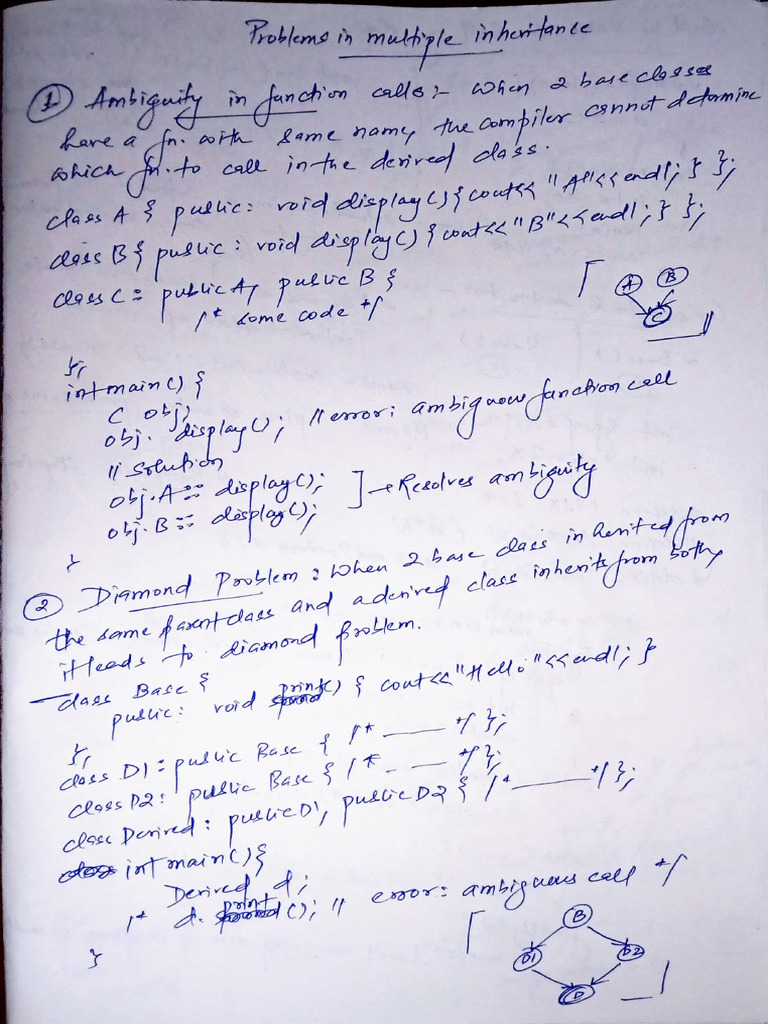 Problems in multiple inheritance
① Ambiguity in function calls :- When 2 base classes
have a fn. with same name, the compiler cannot determine
which fn. to call in the derived class.
class A { public: void display() { cout<< "A"<<endl; } };
class B { public: void display() { cout<< "B"<<endl; } };
class C : public A, public B {
/* some code */
A B
C
};
int main() {
C obj;
obj. display(); // error: ambiguous function call
// Solution
obj.A:: display();
obj.B:: display(); ] → Resolves ambiguity
}
② Diamond Problem : When 2 base class inherited from
the same parent class and a derived class inherits from both,
it leads to diamond problem.
class Base {
public: void print() { cout<<"Hello"<<endl; }
};
class D1 : public Base { /* ___ */ };
class D2 : public Base { /* ___ */ };
class Derived : public D1, public D2 { /* ___ */ };
int main() {
Derived d;
/* d. print(); // error: ambiguous call */
}
B
D1 D2
D